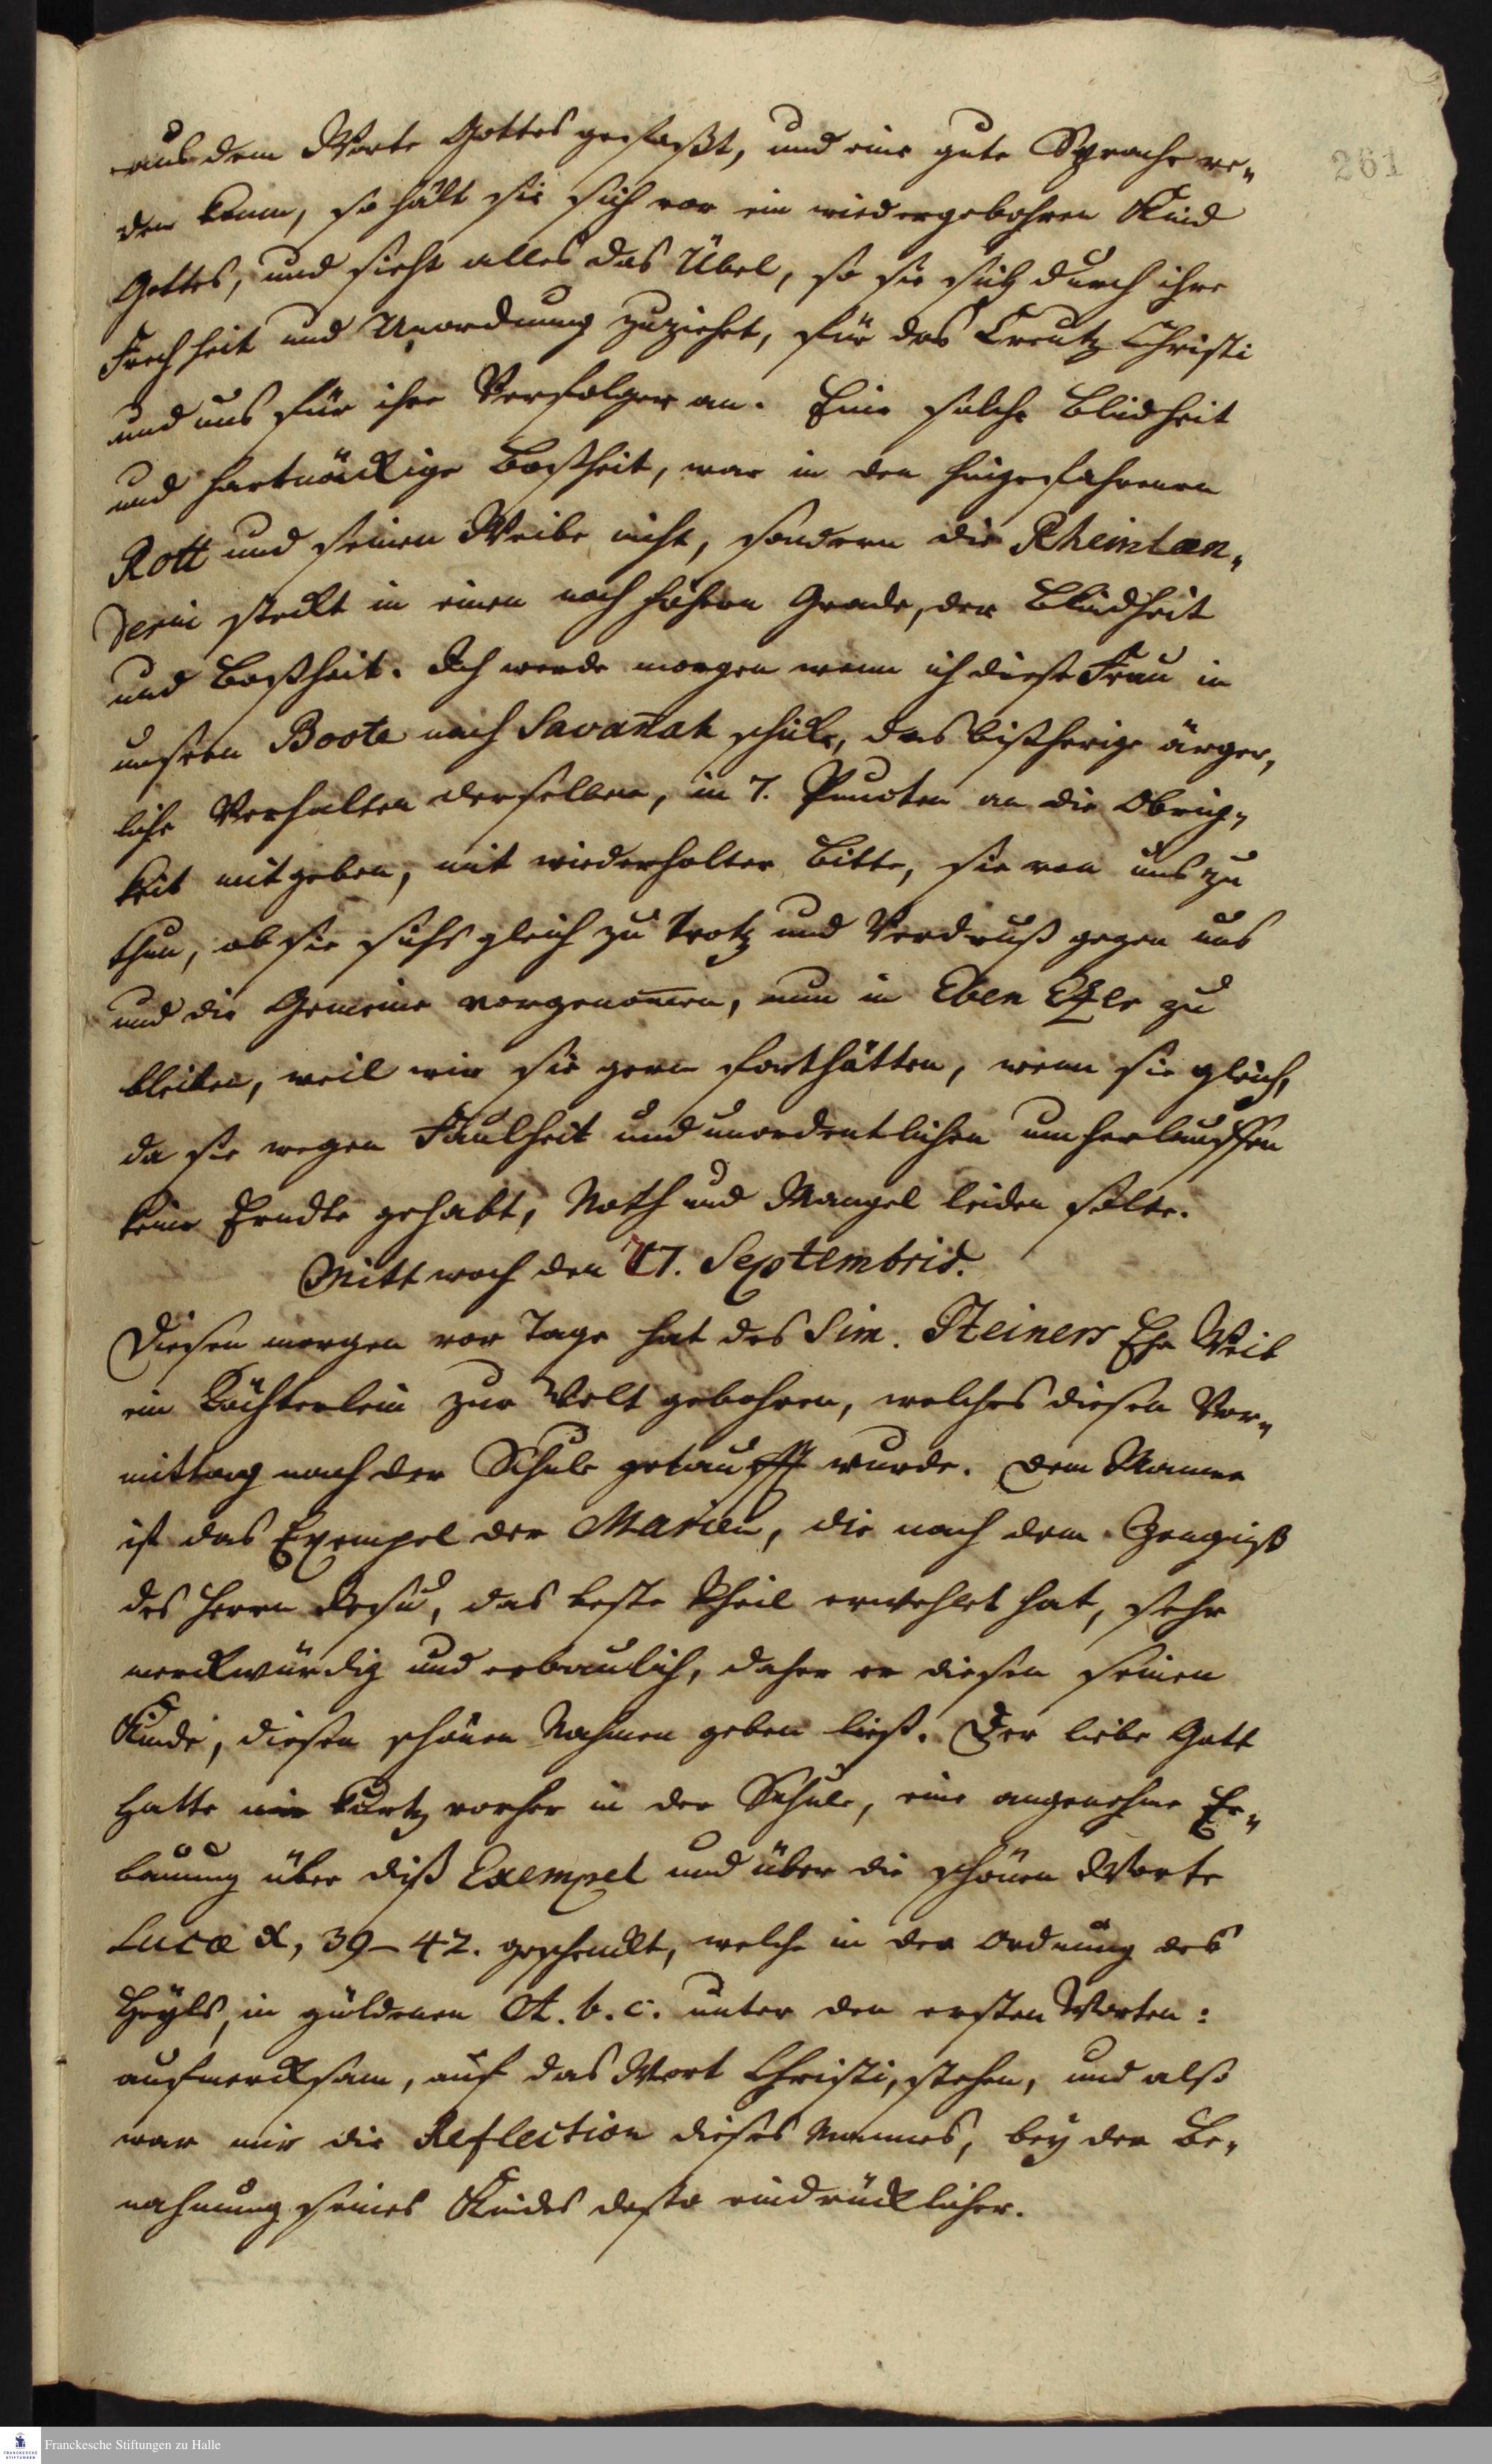 261
aus dem Worte Gottes gefaßt, und eine gute Sprache re-
den kann, so hält sie sich vor ein wiedergebohren Kind
Gottes, und sieht alles das Übel, so sie sich durch ihre
Frechheit und Unordnung zuziehet, für das Creutz Christi
und uns für ihre Verfolger an. Eine solche Blindheit
und hartnäckige Boßheit, war in den hingefahrenen
Rott und seinen Weibe nicht, sondern die Rheinlæn-
derin steckt in einen noch höhern Grade, der Blindheit
und Boßheit. Ich werde morgen wenn ich diese Frau in
unsern Boote nach Savañah schicke, das bißherige ärger-
liche Verhalten derselben, in 7. Puncten an die Obrig-
keit mitgeben, mit wiederholter Bitte, sie von uns zu
thun, ob sie sichs gleich zu Trotz und Verdruß gegen uns
und die Gemeine vorgenom̄en, nun in Eben Ezer zu
bleiben, weil wir sie gern forthätten, wenn sie gleich,
da sie wegen Faulheit und unordentlichen umherlauffen
keine Erndte gehabt, Noth und Mangel leiden solte.
Mittwoch den 17. Septembris.
Diesen morgen vor Tage hat des Sim. Steiners Ehe Weib
ein Töchterlein zur Welt gebohren, welches diesen Vor-
mittag nach der Schule getaufft wurde. Dem Manne
ist das Exempel der Marien, die nach dem Zeugniß
des Herrn Jesu, das beste Theil erwehlet hat, sehr
merckwürdig und erbaulich, daher er diesen seinen
Kinde, diesen schönen Nahmen geben ließ. Der liebe Gott
hatte mir kurtz vorher in der Schule, eine angenehme Er-
bauung über diß Exempel und über die schönen Worte
Lucæ X, 39-42. geschenckt, welche in der Ordnung des
Heyls, in güldenen A. b. c. unter den ersten Worten:
aufmercksam, auf das Wort Christi, stehen, und also
war mir die Reflection dieses Mannes, bey der Be-
nahmung seines Kindes desto eindrücklicher.
Franckesche Stiftungen zu Halle